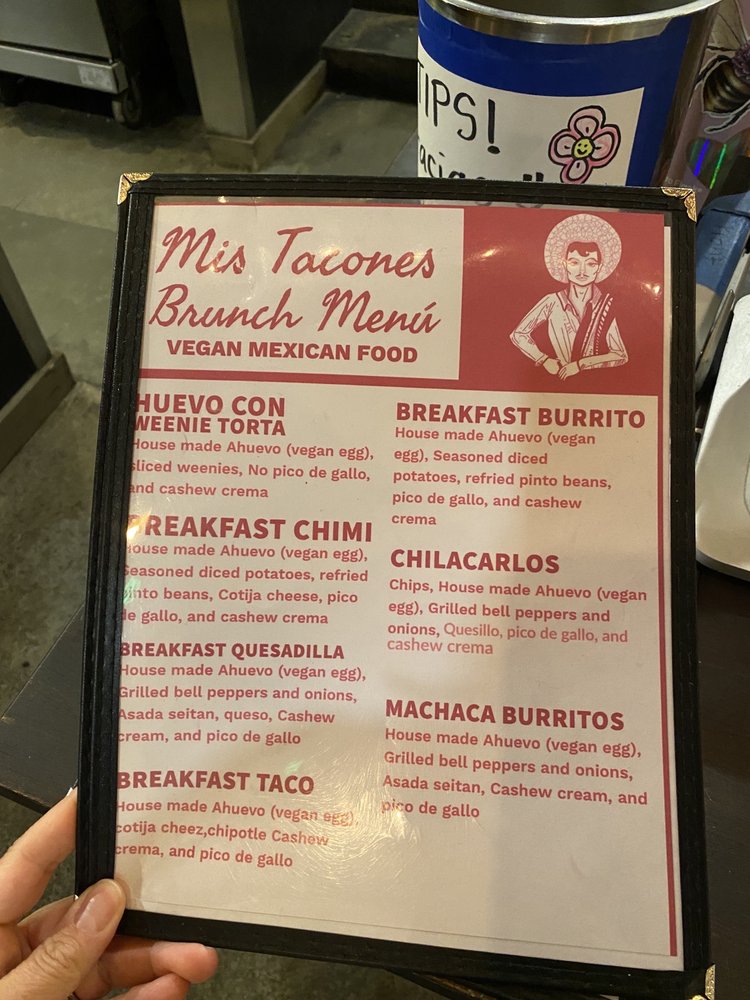 TIPS!
Mis Tacones
Brunch Menú
VEGAN MEXICAN FOOD
HUEVO CON
WEENIE TORTA
House made Ahuevo (vegan egg),
sliced weenies, No pico de gallo,
and cashew crema
BREAKFAST CHIMI
House made Ahuevo (vegan egg),
Seasoned diced potatoes, refried
pinto beans, Cotija cheese, pico
de gallo, and cashew crema
BREAKFAST QUESADILLA
House made Ahuevo (vegan egg),
Grilled bell peppers and onions,
Asada seitan, queso, Cashew
cream, and pico de gallo
BREAKFAST TACO
House made Ahuevo (vegan egg),
cotija cheez,chipotle Cashew
crema, and pico de gallo
BREAKFAST BURRITO
House made Ahuevo (vegan
egg), Seasoned diced
potatoes, refried pinto beans,
pico de gallo, and cashew
crema
CHILACARLOS
Chips, House made Ahuevo (vegan
egg), Grilled bell peppers and
onions, Quesillo, pico de gallo, and
cashew crema
MACHACA BURRITOS
House made Ahuevo (vegan egg),
Grilled bell peppers and onions,
Asada seitan, Cashew cream, and
pico de gallo